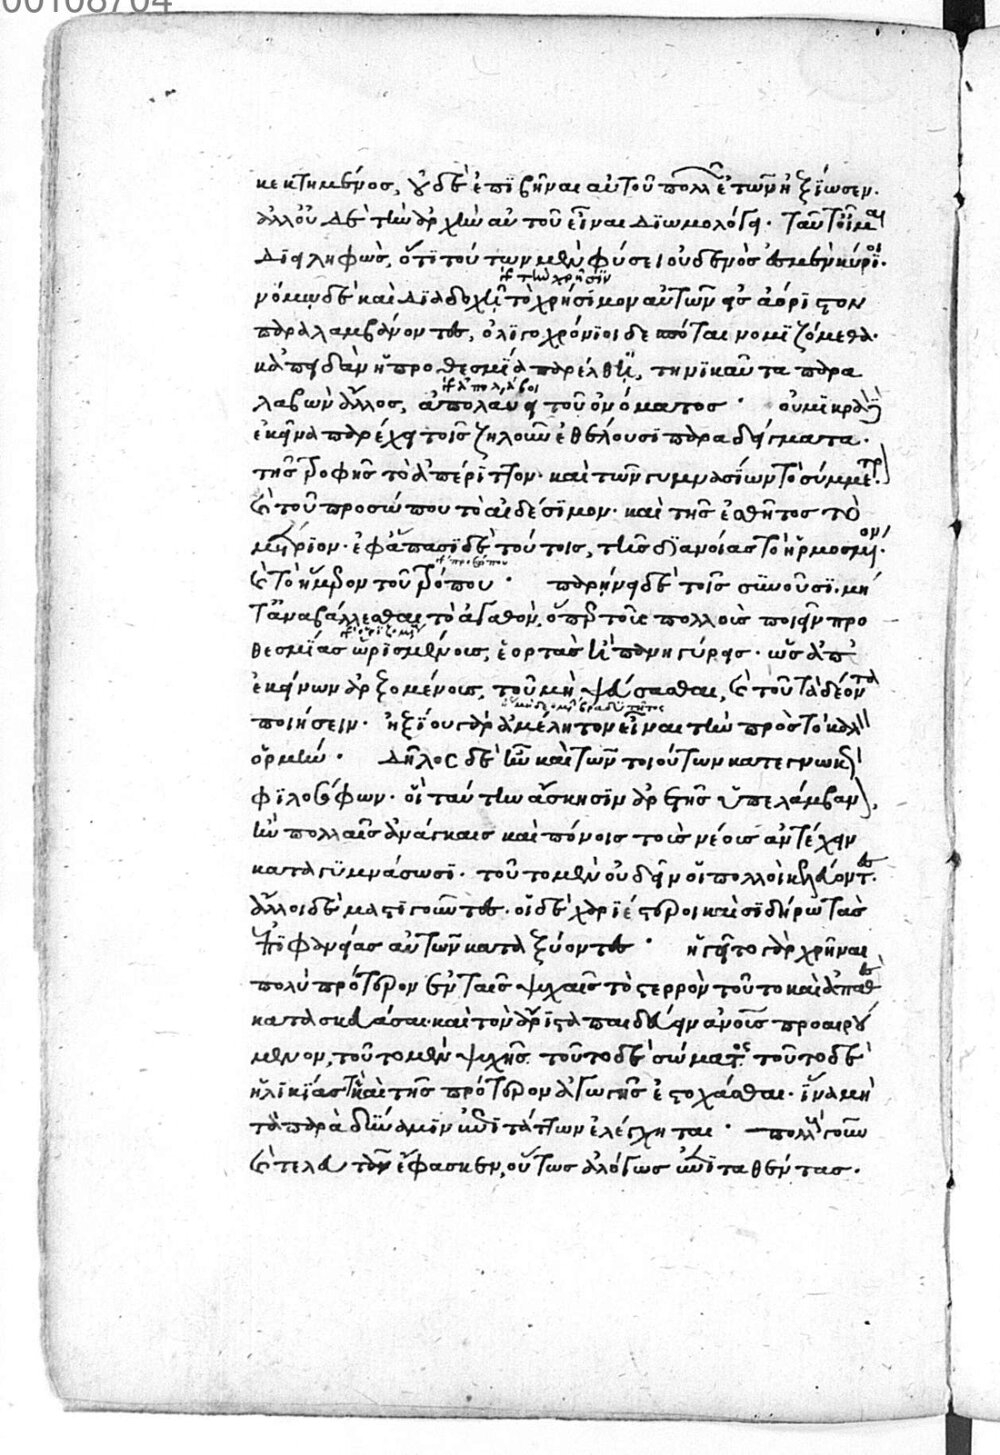 00108704
κεκτημένος, οὐδὲ ἐπιβῆναι αὐτοῦ πολλῶν ἐτῶν ἠξίωσεν.
ἀλλ' οὐδὲ τὴν ἀρχὴν αὐτοῦ εἶναι διωμολόγει. ταῦτ' οἶμαι
διειληφὼς, ὅτι τούτων μὲν φύσει οὐδενὸς ἐσμὲν κύριοι.
ἢ τὴν χρῆσιν
νόμῳ δὲ καὶ διαδοχῇ τὸ χρήσιμον αὐτῶν εἰς ἀόριστον
παραλαμβάνοντες, ὀλιγοχρόνιοι δεσπόται νομιζόμεθα.
κἀπειδὰν ἡ προθεσμία παρέλθῃ, τηνικαῦτα παρα
ἢ ἀπολάβοι
λαβὼν ἄλλος, ἀπολαύει τοῦ ὀνόματος. οὐ μικρὰ δὲ
ἐκεῖνα παρέχει τοῖς ζηλοῦν ἐθέλουσι παραδείγματα.
τῆς τροφῆς τὸ ἀπέριττον. καὶ τῶν γυμνασίων τὸ σύμμετρον.
καὶ τοῦ προσώπου τὸ αἰδέσιμον. καὶ τῆς ἐσθῆτος τὸ
μέτριον. ἐφ' ἅπασι δὲ τούτοις, τῆς διανοίας τὸ ἡρμοσμένον.
καὶ τὸ ἥμερον τοῦ τρόπου. παρῄνει δὲ τοῖς συνοῦσι. μὴ
τ' ἀναβάλλεσθαι τὸ ἀγαθὸν, ὅπερ τοὺς πολλοὺς ποιεῖν προ
ἢ ὁριζομένους
θεσμίας ὡρισμένοις, ἑορτὰς ἢ πανηγύρεις. ὡς ἀπ'
ἐκείνων ἀρξομένοις, τοῦ μὴ ψεύσασθαι, καὶ τοῦ τὰ δέοντα
ποιήσειν. ἠξίου γὰρ ἀμέλητον εἶναι τὴν πρὸς τὸ καλὸν
ὁρμήν. δῆλος δὲ ἦν καὶ τῶν τοιούτων κατεγνωκὼς
φιλοσόφων. οἳ ταύτην ἄσκησιν ἀρετῆς ὑπελάμβανον,
ἢν πολλαῖς ἀνάγκαις καὶ πόνοις τοὺς νέους ἀντέχειν
καταγυμνάσωσι. τοῦτο μὲν οὐδεῖν οἱ πολλοὶ κελεύοντες.
ἄλλοι δὲ μαστιγοῦντες. οἱ δὲ χαριέστεροι καὶ σιδήρῳ τὰς
ἐπιφανείας αὐτῶν καταξύοντες. ἡγεῖτο γὰρ χρῆναι
πολὺ πρότερον ἐν ταῖς ψυχαῖς τὸ στερρὸν τοῦτο καὶ ἀπαθὲς
κατασκευάσαι. καὶ τὸν ἄριστα παιδεύειν ἀνους προαιρού
μενον, τοῦτο μὲν ψυχῆς. τοῦτο δὲ σώματος. τοῦτο δὲ
ἡλικίας τε καὶ τῆς πρότερον ἀγωγῆς ἐστοχάσθαι. ἵνα μὴ
τὰ παρὰ δύναμιν ἐπιτάττων ἐλέγχηται. πολλοὺς γοῦν
καὶ τελευτᾶν ἔφασκεν, οὕτως ἀλόγως ἐπιταθέντας.